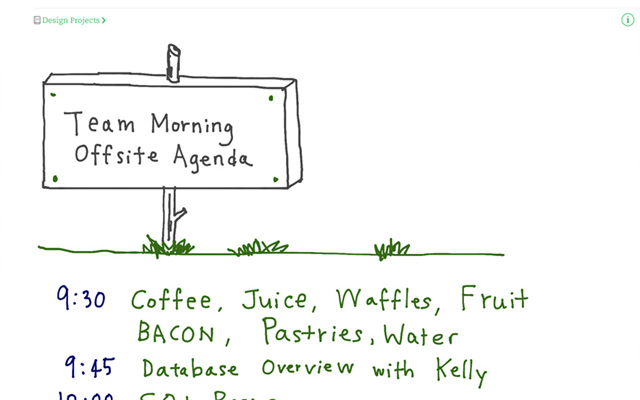 Design Projects >
Team Morning
Offsite Agenda
9:30 Coffee, Juice, Waffles, Fruit
BACON, Pastries, Water
9:45 Database Overview with Kelly